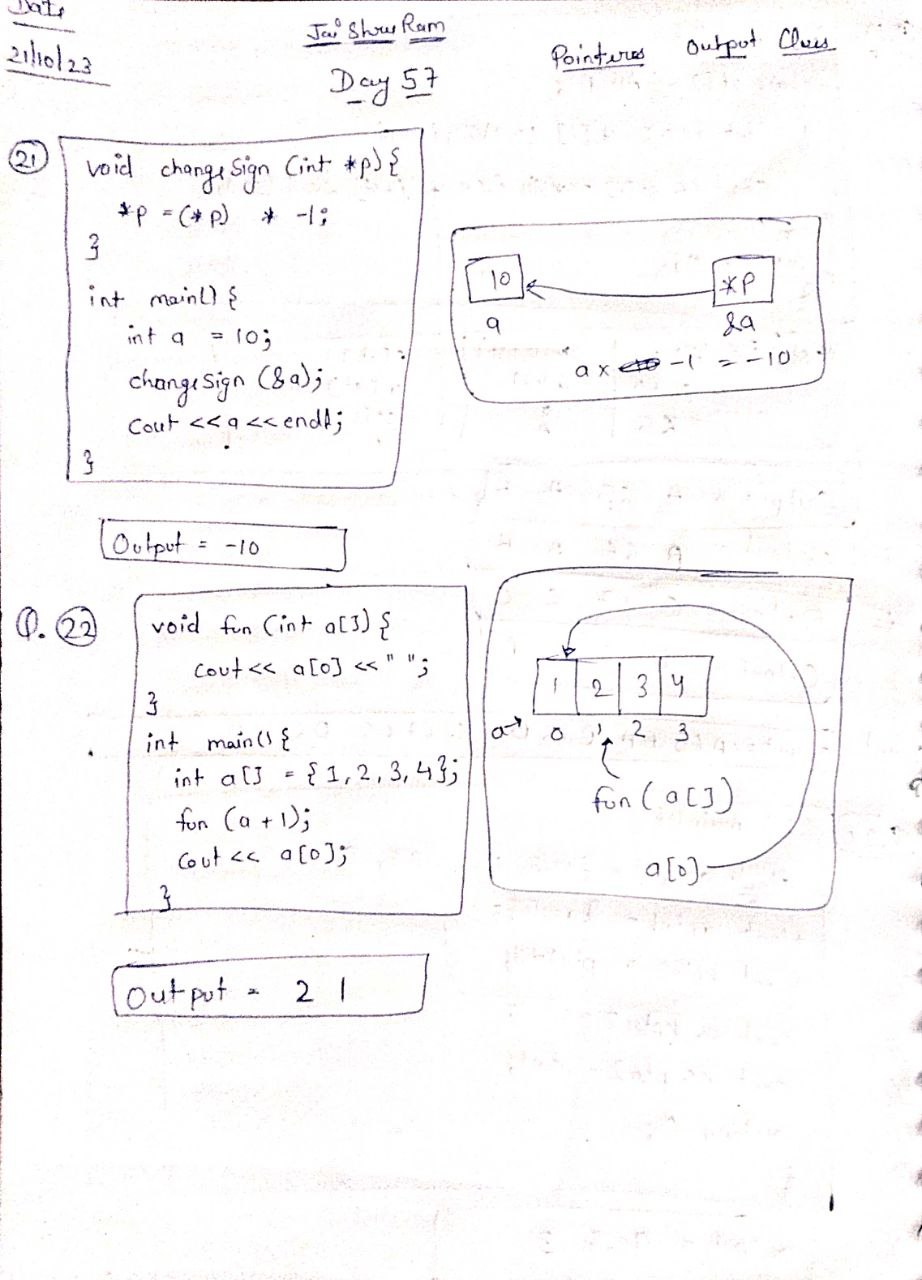 Date
21/10/23
Jai Shree Ram
Day 57
Pointeres Output Class
21
void changeSign (int *p) {
*p = (*p) * -1;
}
int main() {
int a = 10;
changeSign (&a);
cout << a << endl;
}
10
*P
a
&a
a x -1 = -10
Output = -10
Q. 22
void fun (int a[]) {
cout << a[0] << " ";
}
int main() {
int a[] = {1, 2, 3, 4};
fun (a + 1);
cout << a[0];
}
1 2 3 4
a→ 0 1 2 3
fun (a[])
a[0]
Output = 2 1